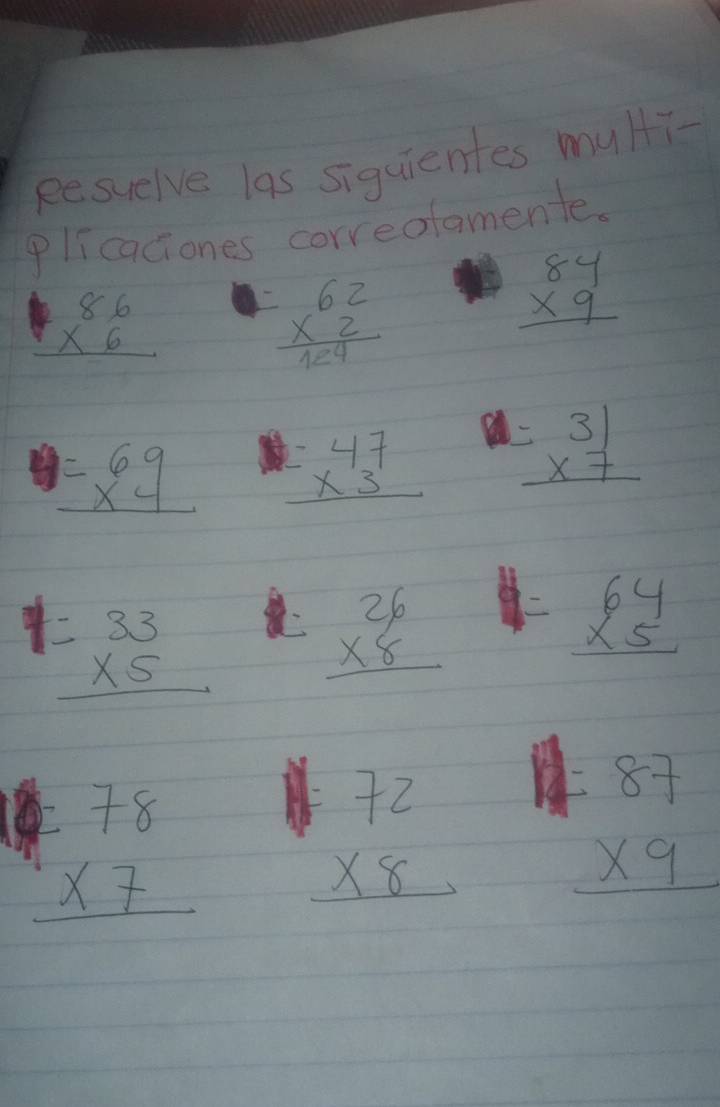 Resuelve las siguientes multi-
plicaciones correctamente.
86 = 62 84
x 6 x 2 x 9
124
4= 69 = 47 = 31
x 4 x 3 x 7
7= 33 8= 26 9= 64
x5 x8 x 5
10= 78 11= 72 12= 87
x 7 x 8 x 9